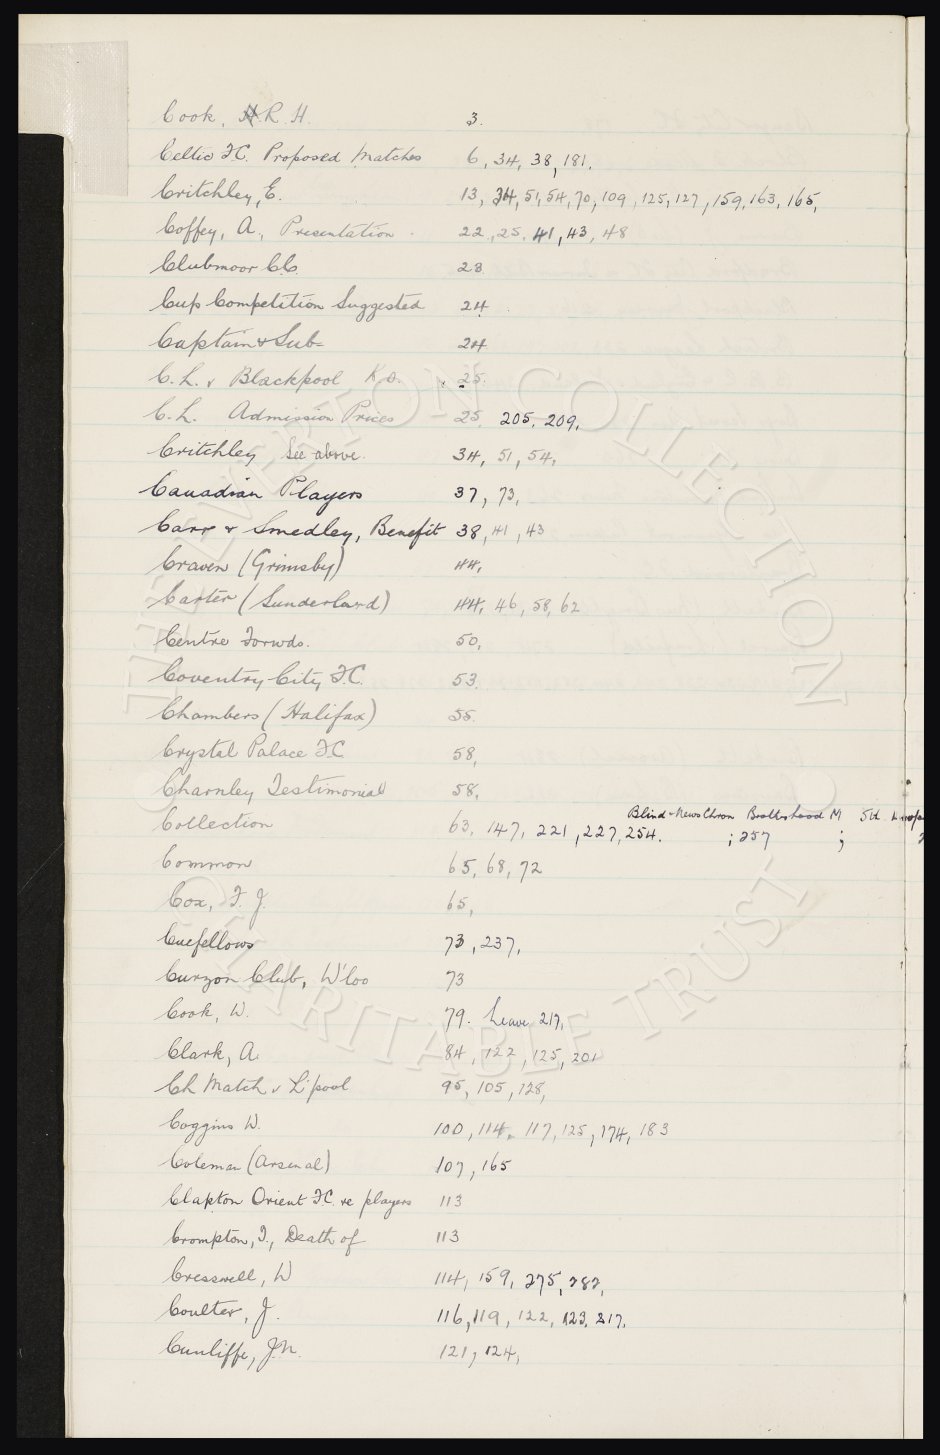 Cook, R. H. 3.
Celtic F.C. Proposed Matches 6, 34, 38, 181.
Critchley, E. 13, 34, 51, 54, 70, 109, 125, 127, 159, 163, 165,
Coffey, A., Presentation. 22, 25, 41, 43, 48
Clubmoor C.C. 23.
Cup Competition Suggested 24.
Captain & Sub- 24
C. L. v Blackpool K.O. 25.
C. L. Admission Prices 25, 205, 209.
Critchley See above. 34, 51, 54,
Canadian Players 37, 73,
Carr & Smedley, Benefit 38, 41, 43
Craven (Grimsby) 44,
Carter (Sunderland) 44, 46, 58, 62
Centre Forwds. 50,
Coventry City F.C. 53.
Chambers (Halifax) 55.
Crystal Palace F.C. 58,
Charnley Testimonial 58,
Blind News Chron Brotherhood M
Collection 63, 147, 221, 227, 254. ; 257 ;
Common 65, 68, 72
Cox, F. J. 65,
Cuefellows 73, 237,
Curzon Club, W'loo 73
Cook, W. 79. Leave 217,
Clark, A. 84, 122, 125, 201
Ch Match v L'pool 95, 105, 128,
Coggins W. 100, 114, 117, 125, 174, 183
Coleman (Arsenal) 107, 165
Clapton Orient F.C. re players 113
Crompton, J., Death of 113
Cresswell, W 114, 159, 275, 282,
Coulter, J. 116, 119, 122, 123, 217,
Cunliffe, J.N. 121, 124,
THE EVERTON COLLECTION
CHARITABLE TRUST